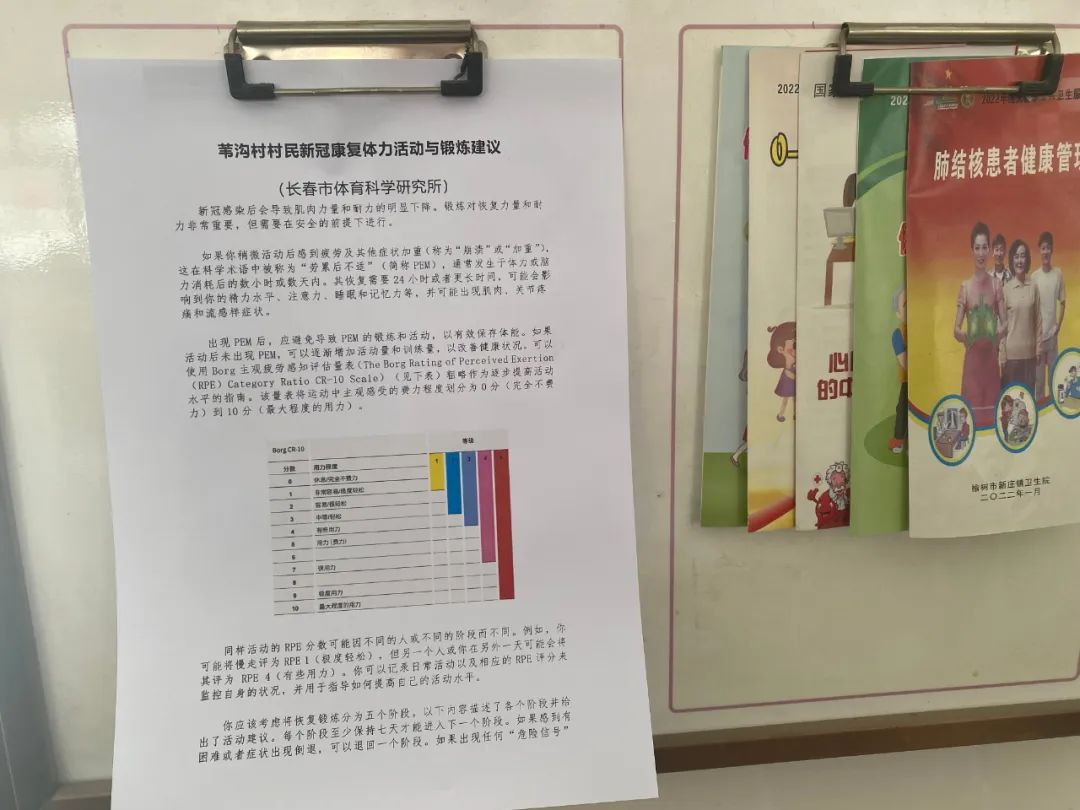 苇沟村村民新冠康复体力活动与锻炼建议
（长春市体育科学研究所）
新冠感染后会导致肌肉力量和耐力的明显下降。锻炼对恢复力量和耐
力非常重要，但需要在安全的前提下进行。
如果你稍微活动后感到疲劳及其他症状加重（称为“崩溃”或“加重”），
这在科学术语中被称为“劳累后不适”（简称 PEM），通常发生于体力或脑
力消耗后的数小时或数天内。其恢复需要 24 小时或者更长时间，可能会影
响到你的精力水平、注意力、睡眠和记忆力等，并可能出现肌肉、关节疼
痛和流感样症状。
出现 PEM 后，应避免导致 PEM 的锻炼和活动，以有效保存体能。如果
活动后未出现 PEM，可以逐渐增加活动量和训练量，以改善健康状况。可以
使用 Borg 主观疲劳感知评估量表（The Borg Rating of Perceived Exertion
（RPE）Category Ratio CR-10 Scale）（见下表）粗略作为逐步提高活动
水平的指南。该量表将运动中主观感受的费力程度划分为 0 分（完全不费
力）到 10 分（最大程度的用力）。
Borg CR-10 等级
分数 用力程度 1 2 3 4 5
0 休息/完全不费力
1 非常容易/极度轻松
2 容易/很轻松
3 中等/轻松
4 有些出力
5 用力（费力）
6
7 很用力
8
9 极度用力
10 最大程度的用力
同样活动的 RPE 分数可能因不同的人或不同的阶段而不同。例如，你
可能将慢走评为 RPE 1（极度轻松），但另一个人或你在另外一天可能会将
其评为 RPE 4（有些用力）。你可以记录日常活动以及相应的 RPE 评分来
监控自身的状况，并用于指导如何提高自己的活动水平。
你应该考虑将恢复锻炼分为五个阶段，以下内容描述了各个阶段并给
出了活动建议。每个阶段至少保持七天才能进入下一个阶段。如果感到有
困难或者症状出现倒退，可以退回一个阶段。如果出现任何“危险信号”
2022
国
202
2022年
卫生
肺结核患者健康管理
心
的中
榆树市新庄镇卫生院
二〇二二年一月